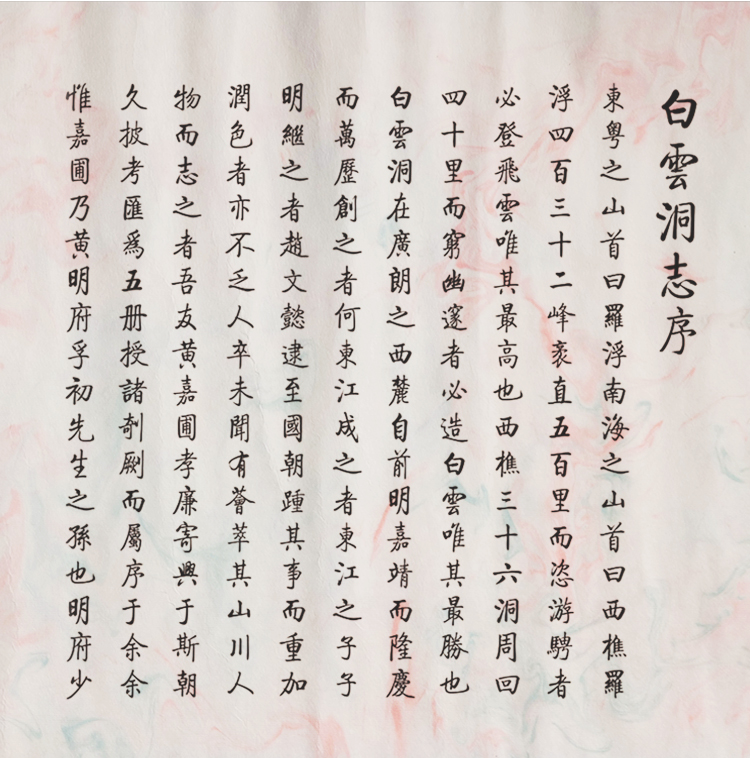 白雲洞志序
東粵之山首曰羅浮南海之山首曰西樵羅
浮四百三十二峰袤直五百里而恣游騁者
必登飛雲唯其最高也西樵三十六洞周回
四十里而窮幽邃者必造白雲唯其最勝也
白雲洞在廣朗之西麓自前明嘉靖而隆慶
而萬歷創之者何東江成之者東江之子子
明繼之者趙文懿逮至國朝踵其事而重加
潤色者亦不乏人卒未聞有薈萃其山川人
物而志之者吾友黃嘉圃孝廉寄興于斯朝
久披考匯爲五册授諸剞劂而屬序于余余
惟嘉圃乃黃明府孚初先生之孫也明府少